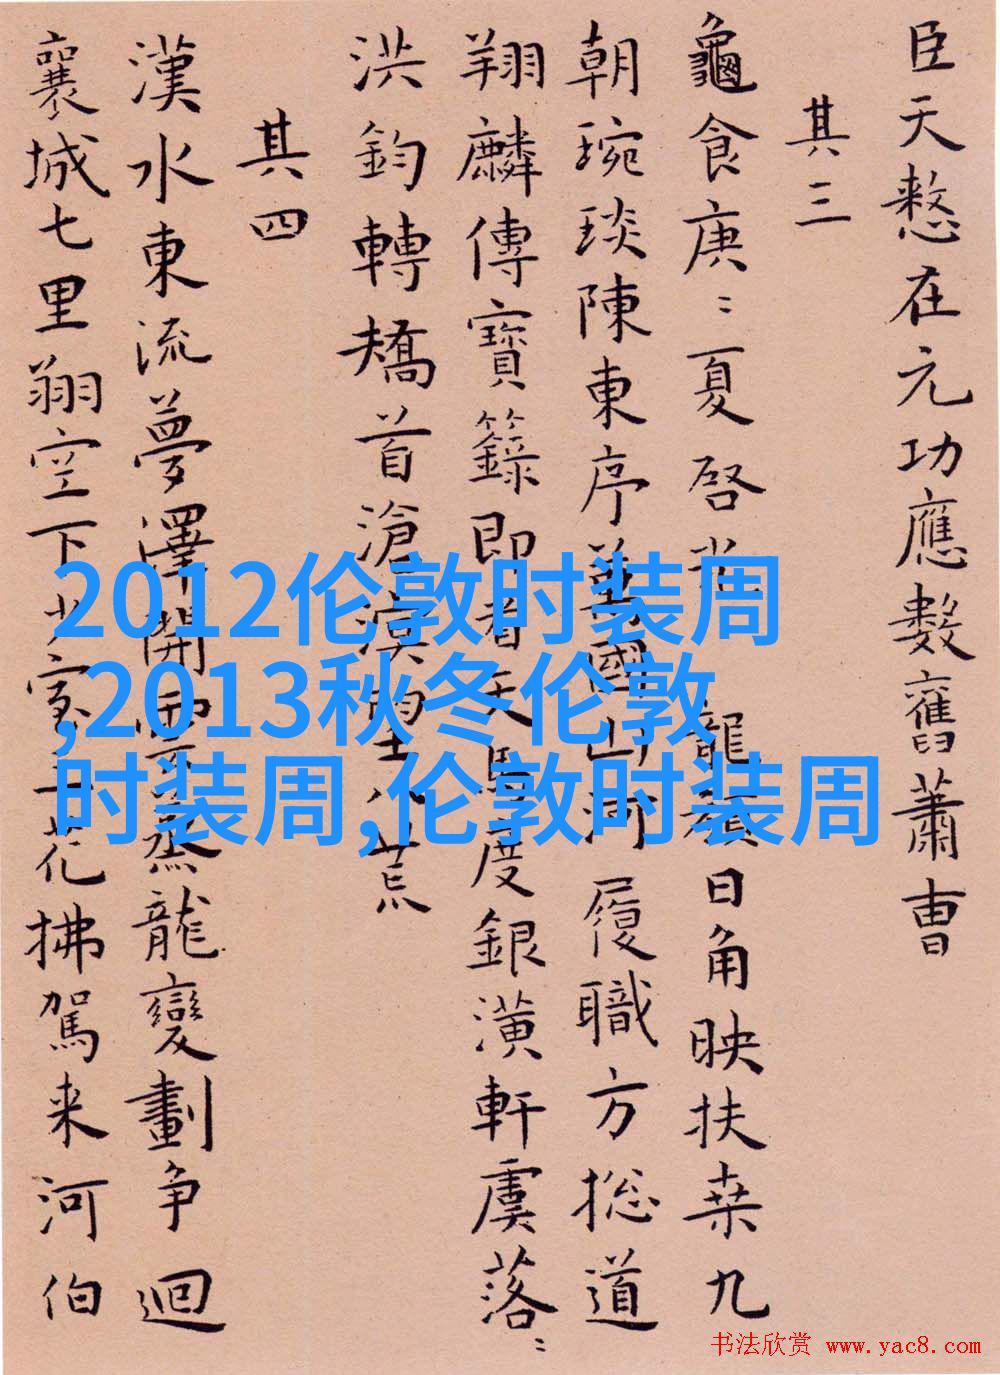 臣天憖在元功應數舊蕭曹
其三
龜食庚〻夏啓光 龍顏日角映扶桒九
朝琬琰陳東序萬國山河履職方捴道
翔麟傳寶籙即看天馬度銀潢軒虞落〻
洪鈞轉矯首滄溟望八荒
其四
漢水東流夢澤開雲蒸龍變劃争迴
襄城七里翔空下少室三花拂駕来河伯
2012伦敦时装周
,2013秋冬伦敦
时装周,伦敦时装周
书法欣赏 www.yac8.com